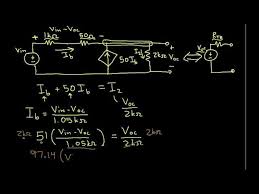 Vin-Voc
1kΩ
50Ω
Vin
I_b
50I_b
2kΩ
Voc
R_TH
Voc
I_b + 50I_b = I_2
I_b = Vin-Voc / 1.05kΩ
Voc / 2kΩ
2kΩ 51(Vin-Voc / 1.05kΩ) = Voc / 2kΩ 2kΩ
97.14(V